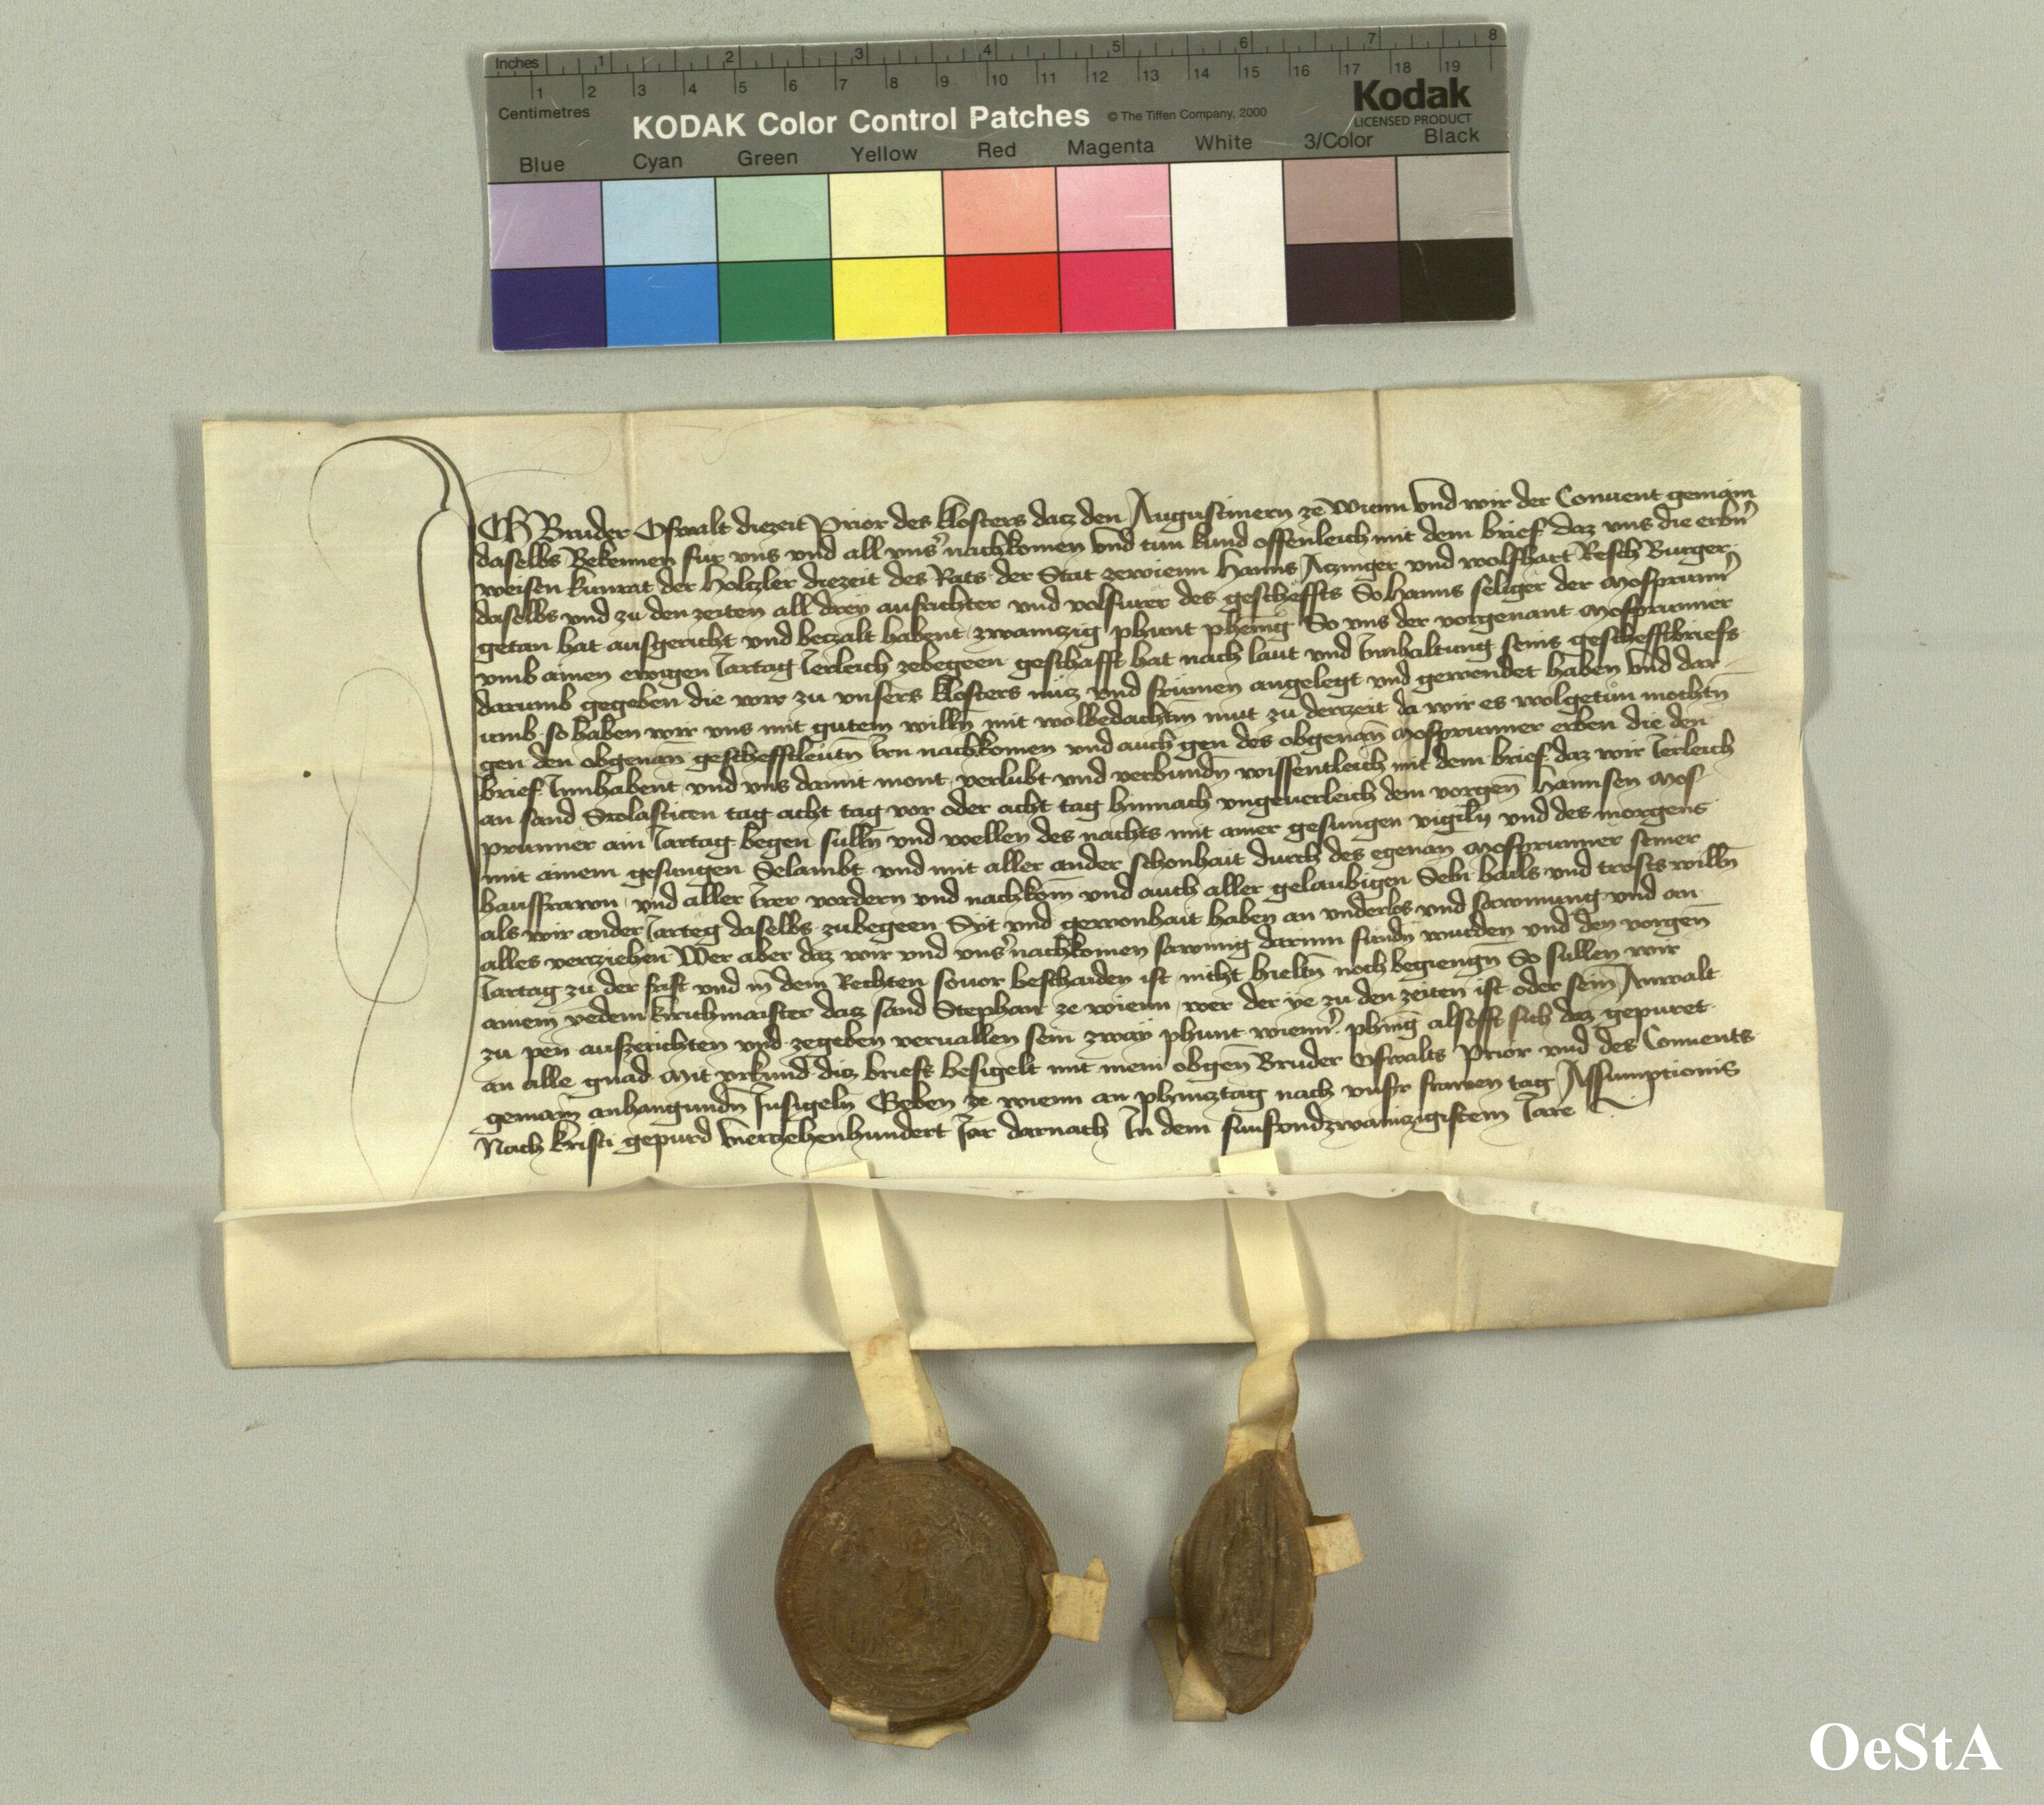 Inches 1 2 3 4 5 6 7 8
1 2 3 4 5 6 7 8 9 10 11 12 13 14 15 16 17 18 19
Centimetres
KODAK Color Control Patches © The Tiffen Company, 2000 Kodak
LICENSED PRODUCT
Blue Cyan Green Yellow Red Magenta White 3/Color Black
ICH Bruder Oswalt diezeit Prior des klosters datz den Augustinern ze Wienn vnd wir der Conuent gemain
daselbs Bekennen fur vns vnd all vnser nachkomen vnd tun kund offenleich mit dem brief daz vns die erbern
weisen kunrat der Holtzler diezeit des Rats der Stat zewienn Hanns Atzinger vnd wolfhart Resch Burger
daselbs vnd zu den zeiten all drey ausrichter vnd volfurer des gescheffts So Hanns seliger der Mosprunner
getan hat ausgericht vnd betzalt habent zwaintzig phunt phenig So vns der vorgenant Mosprunner
vmb ainen ewigen Jartag Jerleich zebegeen geschafft hat nach laut vnd Innhaltung seins gescheftbriefs
darumb gegeben die wir zu vnsers klosters nutz vnd frumen angelegt vnd gewendet haben vnd dar
umb so haben wir vns mit gutem willn mit wolbedachtm mut zu der zeit da wir es wolgetun mochtn
gen den obgenan gescheftleutn Irn nachkomen vnd auch gen des obgenan Mosprunner erben die den
brief Innhabent vnd vns damit mont verlubt vnd verbundn wissentleich mit dem brief daz wir Jerleich
an sand Scolasticen tag acht tag vor oder acht tag hinnach vngeuerleich dem vorgen Hannsen Mos
prunner ain Jartag begen sulln vnd wellen des nachts mit ainer gesungen vigily vnd des morgens
mit ainem gesungen Selambt vnd mit aller ander schonhait durch des egenan Mosprunner seiner
hausfrawn vnd aller Irer vordern vnd nachkom vnd auch aller gelaubigen Seln hails vnd trosts willn
als wir ander Jarteg daselbs zubegeen Syt vnd gewonhait haben an vnderlos vnd sawmung vnd an
alles vertziehen Wer aber daz wir vnd vnser nachkomen sawmig darinn fundn wurden vnd den vorgen
Jartag zu der frist vnd in dem Rechten souor beschaiden ist nicht hieltn noch begiengn So sullen wir
ainem yedem kirichmaister datz sand Stephan ze wienn wer der ye zu den zeiten ist oder seim Anwalt
zu pen aufzerichten vnd zegeben veruallen sein zway phunt wienner phenig alsofft sich daz gepuret
an alle gnad Mit vrkund ditz briefs besigelt mit mein obgen Bruder Oswalts Prior vnd des Conuents
gemain anhangundn Insigeln Geben ze wienn an phintztag nach vnser frawen tag Assumptionis
Nach kristi gepurd viertzehenhundert Jar darnach In dem funfvndzwaintzigistem Jare
OeStA